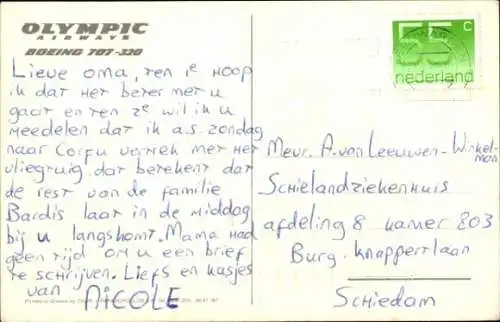 OLYMPIC
AIRWAYS
BOEING 707-320
Lieve oma, ten 1e hoop
ik dat het beter met u
gaat en ten 2e wil ik u
meedelen dat ik a.s. zondag
naar Corfu vertrek met het
vliegtuig dat betekent dat
de rest van de familie
Bardis laat in de middag
bij u langskomt. Mama had
geen tijd om u een brief
te schrijven. Liefs en kusjes
van NICOLE
55 c
nederland
Mevr. A. van Leeuwen-Winkel-
man
Schielandziekenhuis
afdeling 8 kamer 803
Burg. Knappertlaan
Schiedam
Printed in Greece by